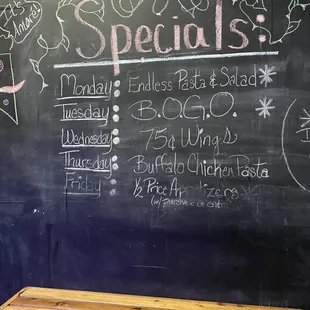 It's
Specials:
Monday: Endless Pasta & Salad
Tuesday: B.O.G.O.
Wednesday: 75¢ Wings
Thursday: Buffalo Chicken Pasta
Friday: ½ Price Ap
(w/ purchase